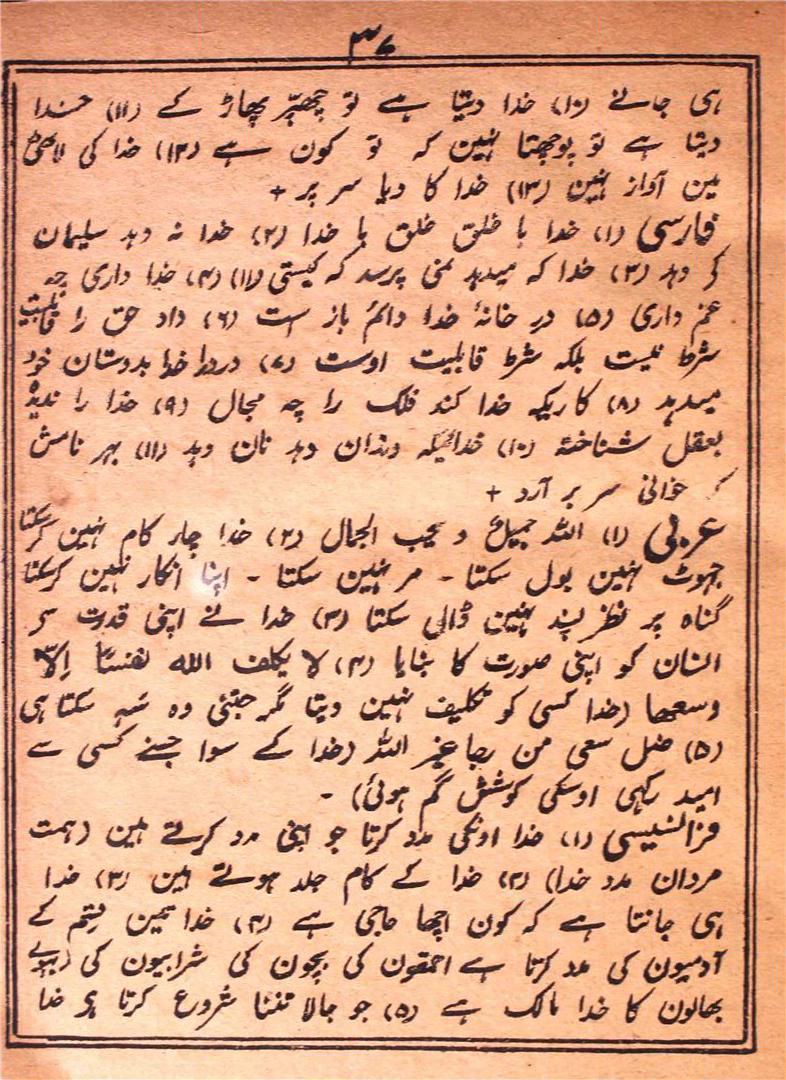 ۳۷
ہی جانے (۱۰) خدا دیتا ہے تو چھپّر پھاڑ کے (۱۱) خدا
دیتا ہے تو پوچھتا نہین کہ تو کون ہے (۱۲) خدا کی لاٹھی
مین آواز نہین (۱۳) خدا کا دیا سر پر +
فارسی (۱) خدا با خلق خلق با خدا (۲) خدا نہ دہد سلیمان
کے دہد (۳) خدا کہ میدہد نمی پرسد کہ کیستی (۱۱) (۴) خدا داری چہ
غم داری (۵) در خانۂ خدا دائم باز است (۶) داد حق را قابلیت
شرط نیست بلکہ شرط قابلیت اوست (۷) خدا بدوستان خود
میدہد (۸) کاریکہ خدا کند فلک را چہ مجال (۹) خدا را ندیدہ
بعقل شناختہ (۱۰) خدائیکہ دندان دہد نان دہد (۱۱) بہر نامش
کہ خوانی سر بر آرد +
عربی (۱) اللہ جمیل و یحب الجمال (۲) خدا چار کام نہین کر سکتا
جہوٹ نہین بول سکتا - مر نہین سکتا - اپنا انکار نہین کرسکتا
گناہ پر نظر پسند نہین ڈال سکتا (۳) خدا نے اپنی قدرت سے
انسان کو اپنی صورت کا بنایا (۴) لا یکلف اللہ نفسًا اِلّا
وسعھا (خدا کسی کو تکلیف نہین دیتا مگر جتنی وہ سَہ سکتا ہی
(۵) ضل سعی من رجا غیر اللہ (خدا کے سوا جسنے کسی سے
امید رکہی اوسکی کوشش گم ہوئی) -
فرانسیسی (۱) خدا اونکی مدد کرتا جو اپنی مدد کرتے ہین (ہمت
مردان مدد خدا) (۲) خدا کے کام جلد ہوتے ہین (۳) خدا
ہی جانتا ہے کہ کون اچھا حاجی ہے (۴) خدا تین قسم کے
آدمیون کی مدد کرتا ہے احمقون کی بچون کی شرابیون کی
بھالون کا خدا مالک ہے (۵) جو جالا تننا شروع کرتا ہی خدا